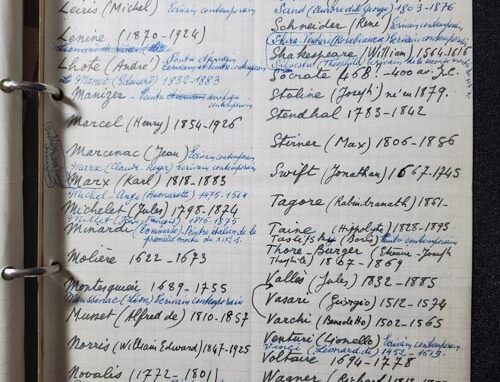 Leiris (Michel) Ecrivain contemporain
Lénine (1870-1924)
Lhote (André) Peintre
E. Manet (Edouard) 1832-1883
Manizer - Peintre contemporain
Marcel (Henry) 1854-1926
Marcenac (Jean) Ecrivain contemporain
Marx (Claude-Roger) Ecrivain contemporain
Marx (Karl) 1818-1883
Michel-Ange (Buonarotti) 1475-1564
Michelet (Jules) 1798-1874
Millet (Jean François) 1815-1875
Minardi (Tommaso) Peintre italien de la
première moitié du XIX
Molière 1622-1673
Montesquieu 1689-1755
Moussinac (Léon) Ecrivain contemporain
Musset (Alfred de) 1810-1857
Norris (William Edward) 1847-1925
Novalis (1772-1801)
Sand (Aurore dite George) 1803-1876
Schneider (René) Ecrivain contemporain
Shakespeare (William) 1564-1616
Silvestre (Théophile)
Socrate 468 - 400 av. J.C.
Staline (Joseph) né en 1879.
Stendhal 1783-1842
Stirner (Max) 1806-1886
Swift (Jonathan) 1667-1745
Tagore (Rabindranath) 1861-
Taine (Hippolyte) 1828-1893
(Boris) Peintre contemporain
Thoré-Burger (Etienne-Joseph
Théophile) 1807-1869
Vallès (Jules) 1832-1885
Vasari (Giorgio) 1512-1574
Varchi (Benedetto) 1502-1565
Venturi (Lionello) Ecrivain contemporain
Vinci (Léonard de) 1452-1519.
Voltaire 1694-1778
Wagner (Richard)